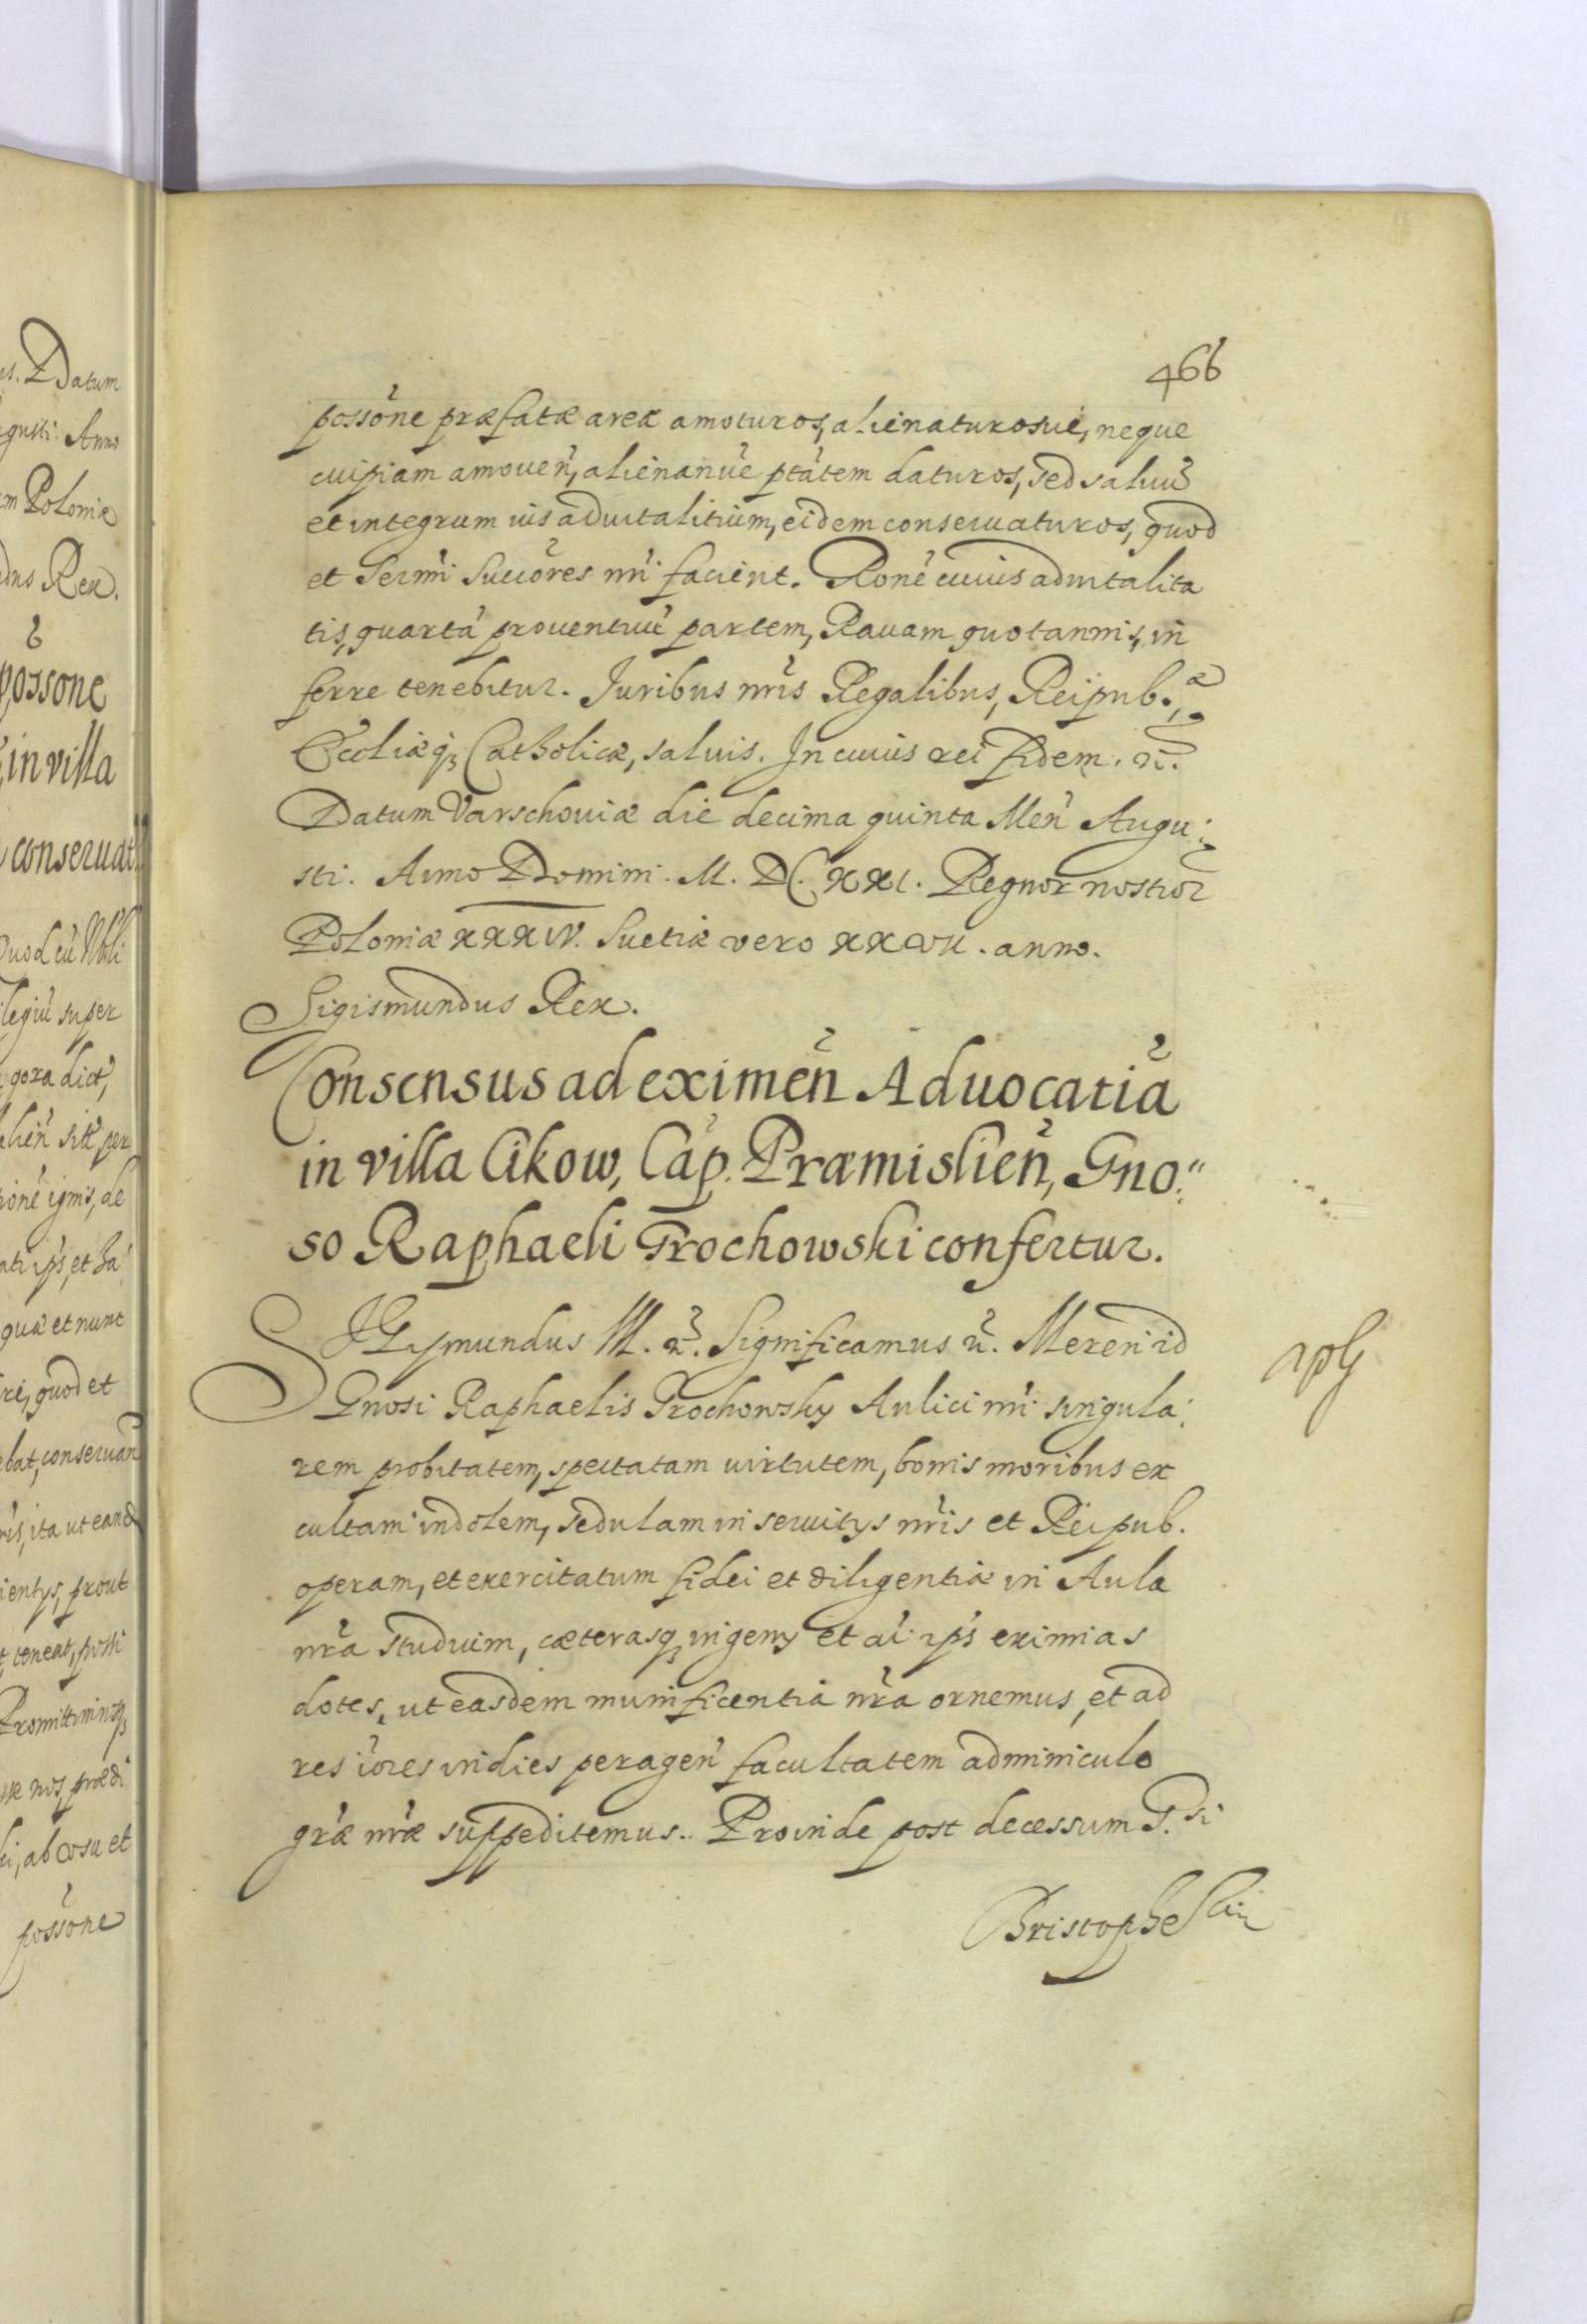 466
possōne præfatæ areæ amoturos, alienaturosue, neque
cuipiam amoueñ, alienanue ptātem daturos, sed saluū
et integrum ius aduitalitium, eidem conseruaturos, quod
et Sermi Succōres nri facient. Rone cuius aduitalita
tis, quartā prouentuū partem, Rauam quotannis, in
ferre tenebitur. Juribus nris Regalibus, Reipub. æ
Eccliæq3 Catholicæ, saluis. In cuius rei fidem. &c.
Datum Varschouiæ die decima quinta Men Augu:
sti. Anno Domini. M. DC. XXI. Regnor nostror
Poloniæ XXXIV. Suetiæ vero XXVII. anno.
Sigismundus Rex.
Consensus ad eximeñ Aduocatiā
in villa Cikow, Cap. Præmislieñ, Gno:
so Raphaeli Grochowski confertur.
SIGismundus III. &c. Significamus &c. Mereñ id
Gnosi Raphaelis Grochowsky Aulici nri singula:
rem probitatem, spectatam uirtutem, bonis moribus ex
cultam indolem, sedulam in seruitys nris et Reipub.
operam, et exercitatum fidei et diligentiæ in Aula
nra studium, cæterasq3 ingeny et ai ips eximias
dotes, ut easdem munificentia nra ornemus, et ad
res iores indies perageñ facultatem adminiculo
græ nræ suppeditemus. Proinde post decessum G.si
Christophe
possone
in villa
conseruat
Datum
Anno
Poloniæ
Rex.
super
quæ et nunc
quod et
ita ut eand
prout
teneat, possi
nos prædi
possōne